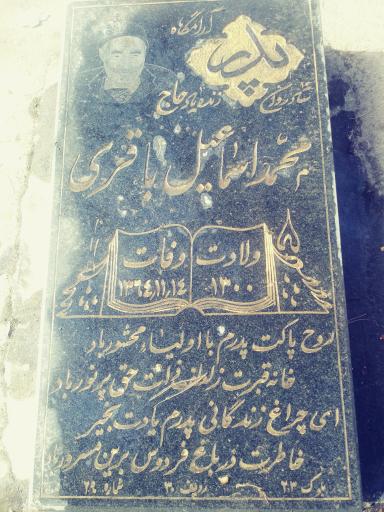 آرامگاه
پدر
شادروان
زنده یاد حاج
محمد اسماعیل باقری
ولادت وفات
۱۳۰۰ ۱۳۶۴،۱۱،۱۴
روح پاکت پدرم با اولیاء محشور باد
خانه قبرت ز لطف ذات حق پر نور باد
ای چراغ زندگانی پدرم یادت بخیر
خاطرت در باغ فردوس برین مسرور باد
ردیف ۳ شماره ۲۹